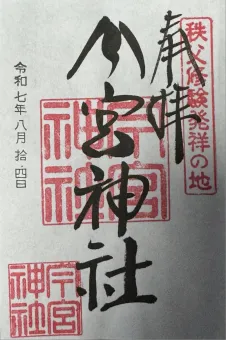 秩父修験発祥の地
奉拝
今宮神社
今宮神社
令和七年八月拾四日
今宮
神社